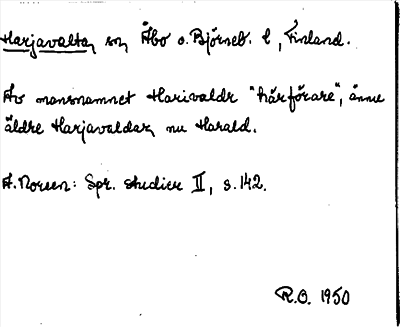 Harjavalta, sn, Åbo o. Björneb. l., Finland.
Av mansnamnet Harivaldr "härförare", ännu
äldre Harjavaldar, nu Harald.
A. Noreen: Spr. studier II, s. 142.
R.O. 1950